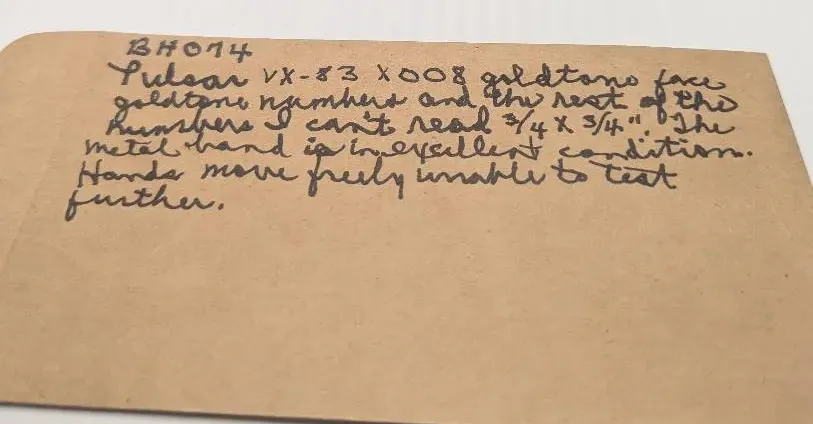 BH074
Pulsar VX-83 X008 goldtone face
goldtone numbers and the rest of the
numbers I can't read 3/4 X 3/4". The
metal band is in excellent condition.
Hands move freely unable to test
further.